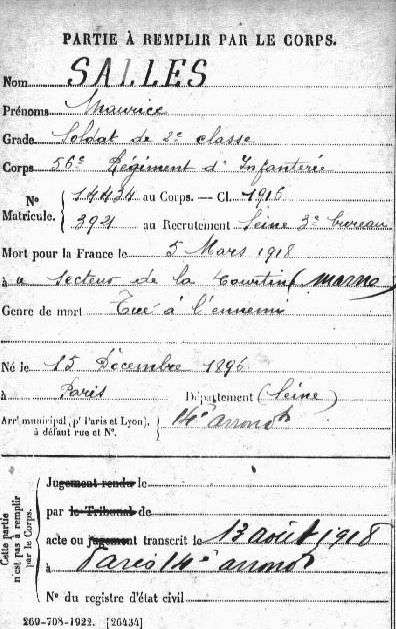 PARTIE À REMPLIR PAR LE CORPS.
Nom SALLES
Prénoms Maurice
Grade Soldat de 2e classe
Corps 56e Régiment d'Infanterie
No Matricule. 14434 au Corps. — Cl. 1916
392 au Recrutement Seine 3e bureau
Mort pour la France le 5 Mars 1918
à a secteur de la Courtine (Marne)
Genre de mort Tué à l'ennemi
Né le 15 Décembre 1896
à Paris Département (Seine)
Arrt municipal (pr Paris et Lyon), à défaut rue et No. 14e arrondt
Cette partie n'est pas à remplir par le Corps.
Jugement rendu le
par le Tribunal de
acte ou jugement transcrit le 13 août 1918
à Paris 14e arrondt
No du registre d'état civil
260-708-1922. [26434]